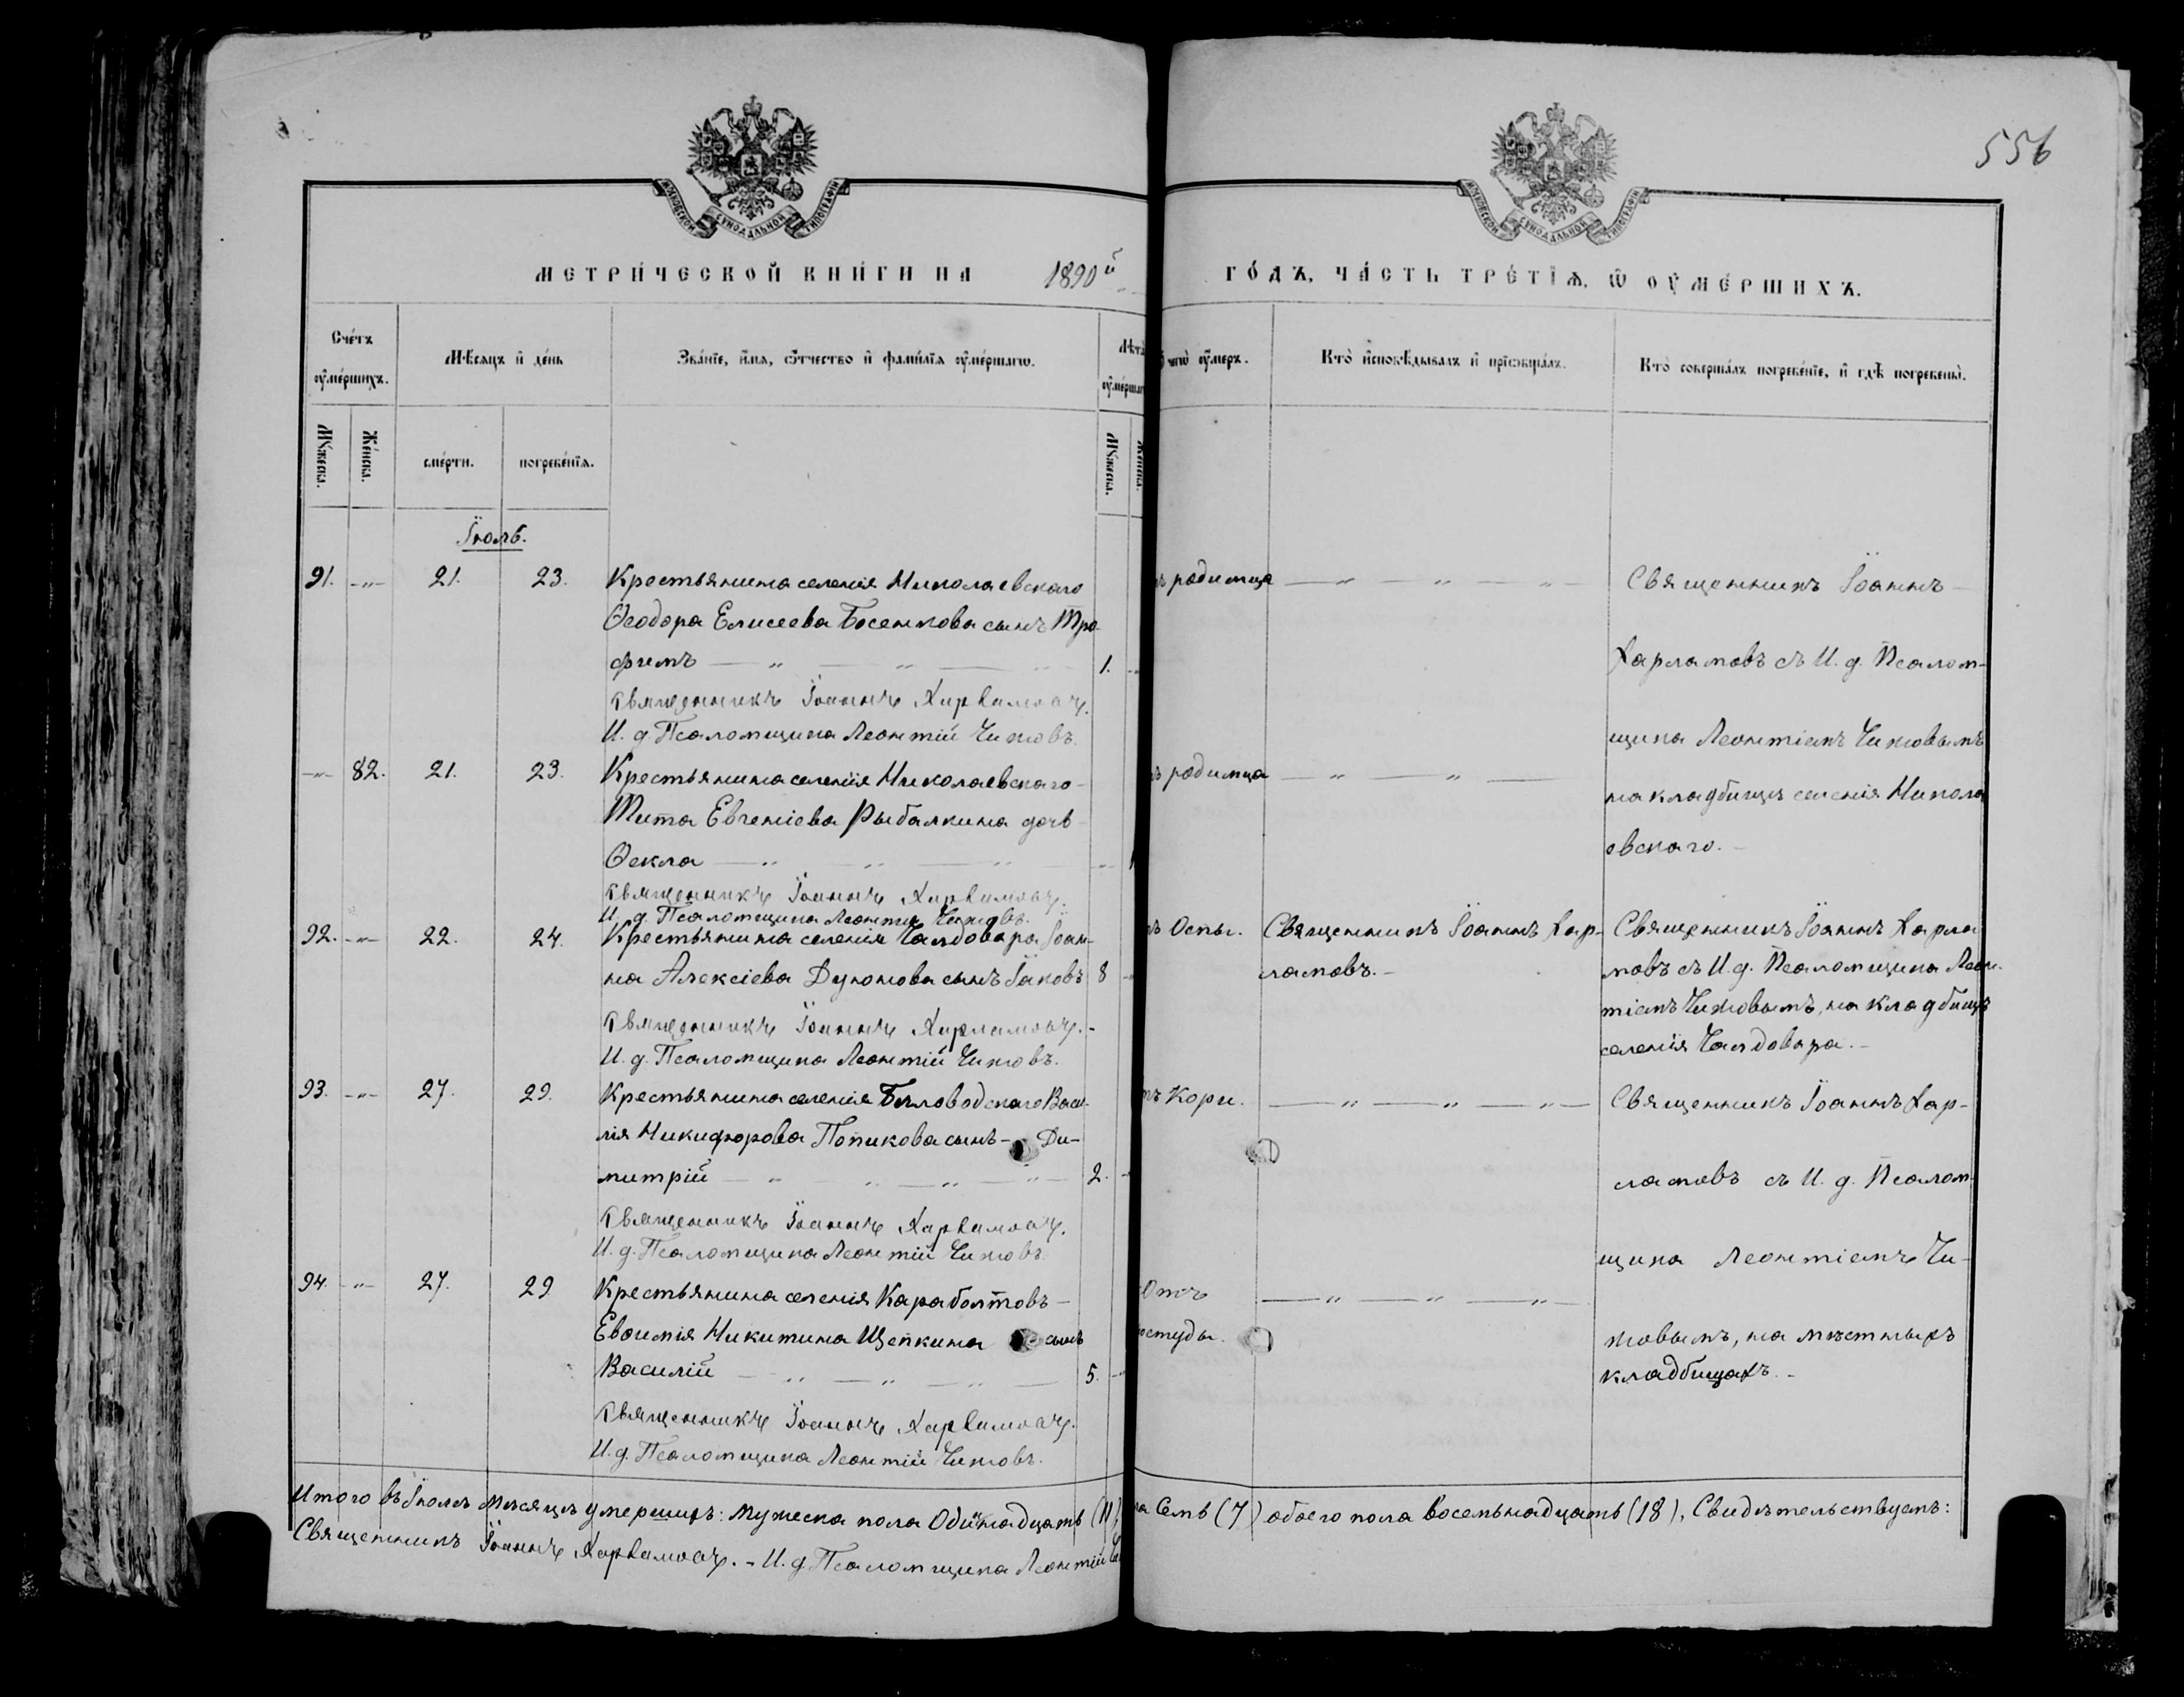 556
МОСКОВСКОЙ СѴНОДАЛЬНОЙ ТИПОГРАФІИ
МОСКОВСКОЙ СѴНОДАЛЬНОЙ ТИПОГРАФІИ
МЕТРИ́ЧЕСКОЙ КНИ́ГИ НА 1890й ГО́ДЪ, ЧА́СТЬ ТРЕ́ТІѦ, Ѿ ОУ҆МЕ́РШИХЪ.
Сче́тъ оу҆ме́ршихъ.
Мѣ́сяцъ и҆ де́нь
Зва́нїе, и҆́мѧ, ѻ҆́тчество и҆ фами́лїѧ оу҆ме́ршагѡ.
Лѣта̀ оу҆ме́рша
чегѡ̀ оу҆́меръ.
Кто̀ и҆сповѣ́дывалъ и҆ прїѡбща́лъ.
Кто̀ соверша́лъ погребе́нїе, и҆ гдѣ̀ погребены̀.
Мꙋ́жеска.
Же́нска.
сме́рти.
погребе́нїѧ.
Мꙋ́жеска.
Же́нска.
Їюль.
91. -„- 21. 23. Крестьянина селенія Николаевскаго
Ѳеодора Елисеева Босенкова сынъ Тро-
фимъ — „ — „ — „ — 1.
Священникъ Іоаннъ Харламовъ.
И. д. Псаломщика Леонтій Чижовъ.
ъ родимца — „ — „ — „ —
Священникъ Іоаннъ
Харламовъ съ И. д. Псалом-
щика Леонтіемъ Чижовымъ
на кладбищѣ селенія Никола
евскаго.
-„- 82. 21. 23. Крестьянина селенія Николаевскаго
Тита Евгеніева Рыбалкина дочь
Ѳекла — „ — „ — „ 1
Священникъ Іоаннъ Харламовъ.
И. д. Псаломщика Леонтій Чижовъ.
ъ родимца — „ — „ —
92. -„- 22. 24. Крестьянина селенія Чалдовара Іоан-
на Алексіева Дуюнова сынъ Іаковъ 8
Священникъ Іоаннъ Харламовъ.
И. д. Псаломщика Леонтій Чижовъ.
ъ Оспы. Священникъ Іоаннъ Хар-
ламовъ.
Священникъ Іоаннъ Харла
мовъ съ И. д. Псаломщика Леон-
тіемъ Чижовымъ, на кладбищѣ
селенія Чалдовара.
93. -„- 27. 29. Крестьянина селенія Бѣловодскаго Васи-
лія Никифорова Попикова сынъ - Ди-
митрій — „ — „ — „ — „ — 2.
Священникъ Іоаннъ Харламовъ.
И. д. Псаломщика Леонтій Чижовъ.
тъ Кори. — „ — „ — „ —
Священникъ Іоаннъ Хар-
ламовъ съ И. д. Псалом-
щика Леонтіемъ Чи-
жовымъ, на мѣстныхъ
кладбищахъ.
94. -„- 27. 29 Крестьянина селенія Карабалтовъ
Евѳимія Никитина Щепкина сынъ
Василій — „ — „ — „ — 5.
Священникъ Іоаннъ Харламовъ.
И. д. Псаломщика Леонтій Чижовъ.
Отъ — „ — „ — „ —
остуды.
Итого въ Іюлѣ мѣсяцѣ умершихъ: мужеска пола Одиннадцать (11), ка Семь (7) обоего пола восемьнадцать (18), Свидѣтельствуемъ:
Священникъ Іоаннъ Харламовъ. - И. д. Псаломщика Леонтій Чи